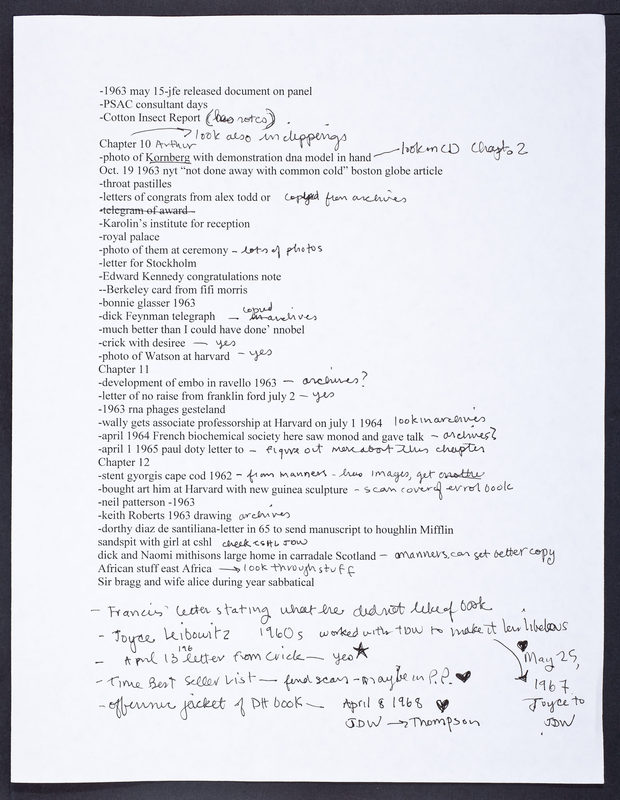 -1963 may 15-jfe released document on panel
-PSAC consultant days
-Cotton Insect Report (has notes)
look also in clippings
Chapter 10 Arthur
-photo of Kornberg with demonstration dna model in hand — look on CD Chapts 2
Oct. 19 1963 nyt “not done away with common cold” boston globe article
-throat pastilles
-letters of congrats from alex todd or copied from archives
-telegram of award
-Karolin’s institute for reception
-royal palace
-photo of them at ceremony – lots of photos
-letter for Stockholm
-Edward Kennedy congratulations note
--Berkeley card from fifi morris
-bonnie glasser 1963
copied
-dick Feynman telegraph – in archives
-much better than I could have done’ nnobel
-crick with desiree — yes
-photo of Watson at harvard – yes
Chapter 11
-development of embo in ravello 1963 – archives?
-letter of no raise from franklin ford july 2 – yes
-1963 rna phages gesteland
-wally gets associate professorship at Harvard on july 1 1964 look in archives
-april 1964 French biochemical society here saw monod and gave talk – archives?
-april 1 1965 paul doty letter to – figure out more about this chapter
Chapter 12
-stent gyorgis cape cod 1962 – from manners - has images, get another
-bought art him at Harvard with new guinea sculpture – scan cover of errol book
-neil patterson -1963
-keith Roberts 1963 drawing archives
-dorthy diaz de santiliana-letter in 65 to send manuscript to houghlin Mifflin
sandspit with girl at cshl check CSHL JDW
dick and Naomi mithisons large home in carradale Scotland – manners, can get better copy
African stuff east Africa → look through stuff
Sir bragg and wife alice during year sabbatical
– Francis' letter stating what he did not like of book
- Joyce Leibowitz 1960s worked with JDW to make it less libelous
– April 13 196 letter from Crick — yes ★
- Time Best Seller List — find scan - maybe in P.P. ♥
- offensive jacket of DH book — April 8 1968 ♥
JDW → Thompson
♥ May 25,
1967
Joyce to
JDW